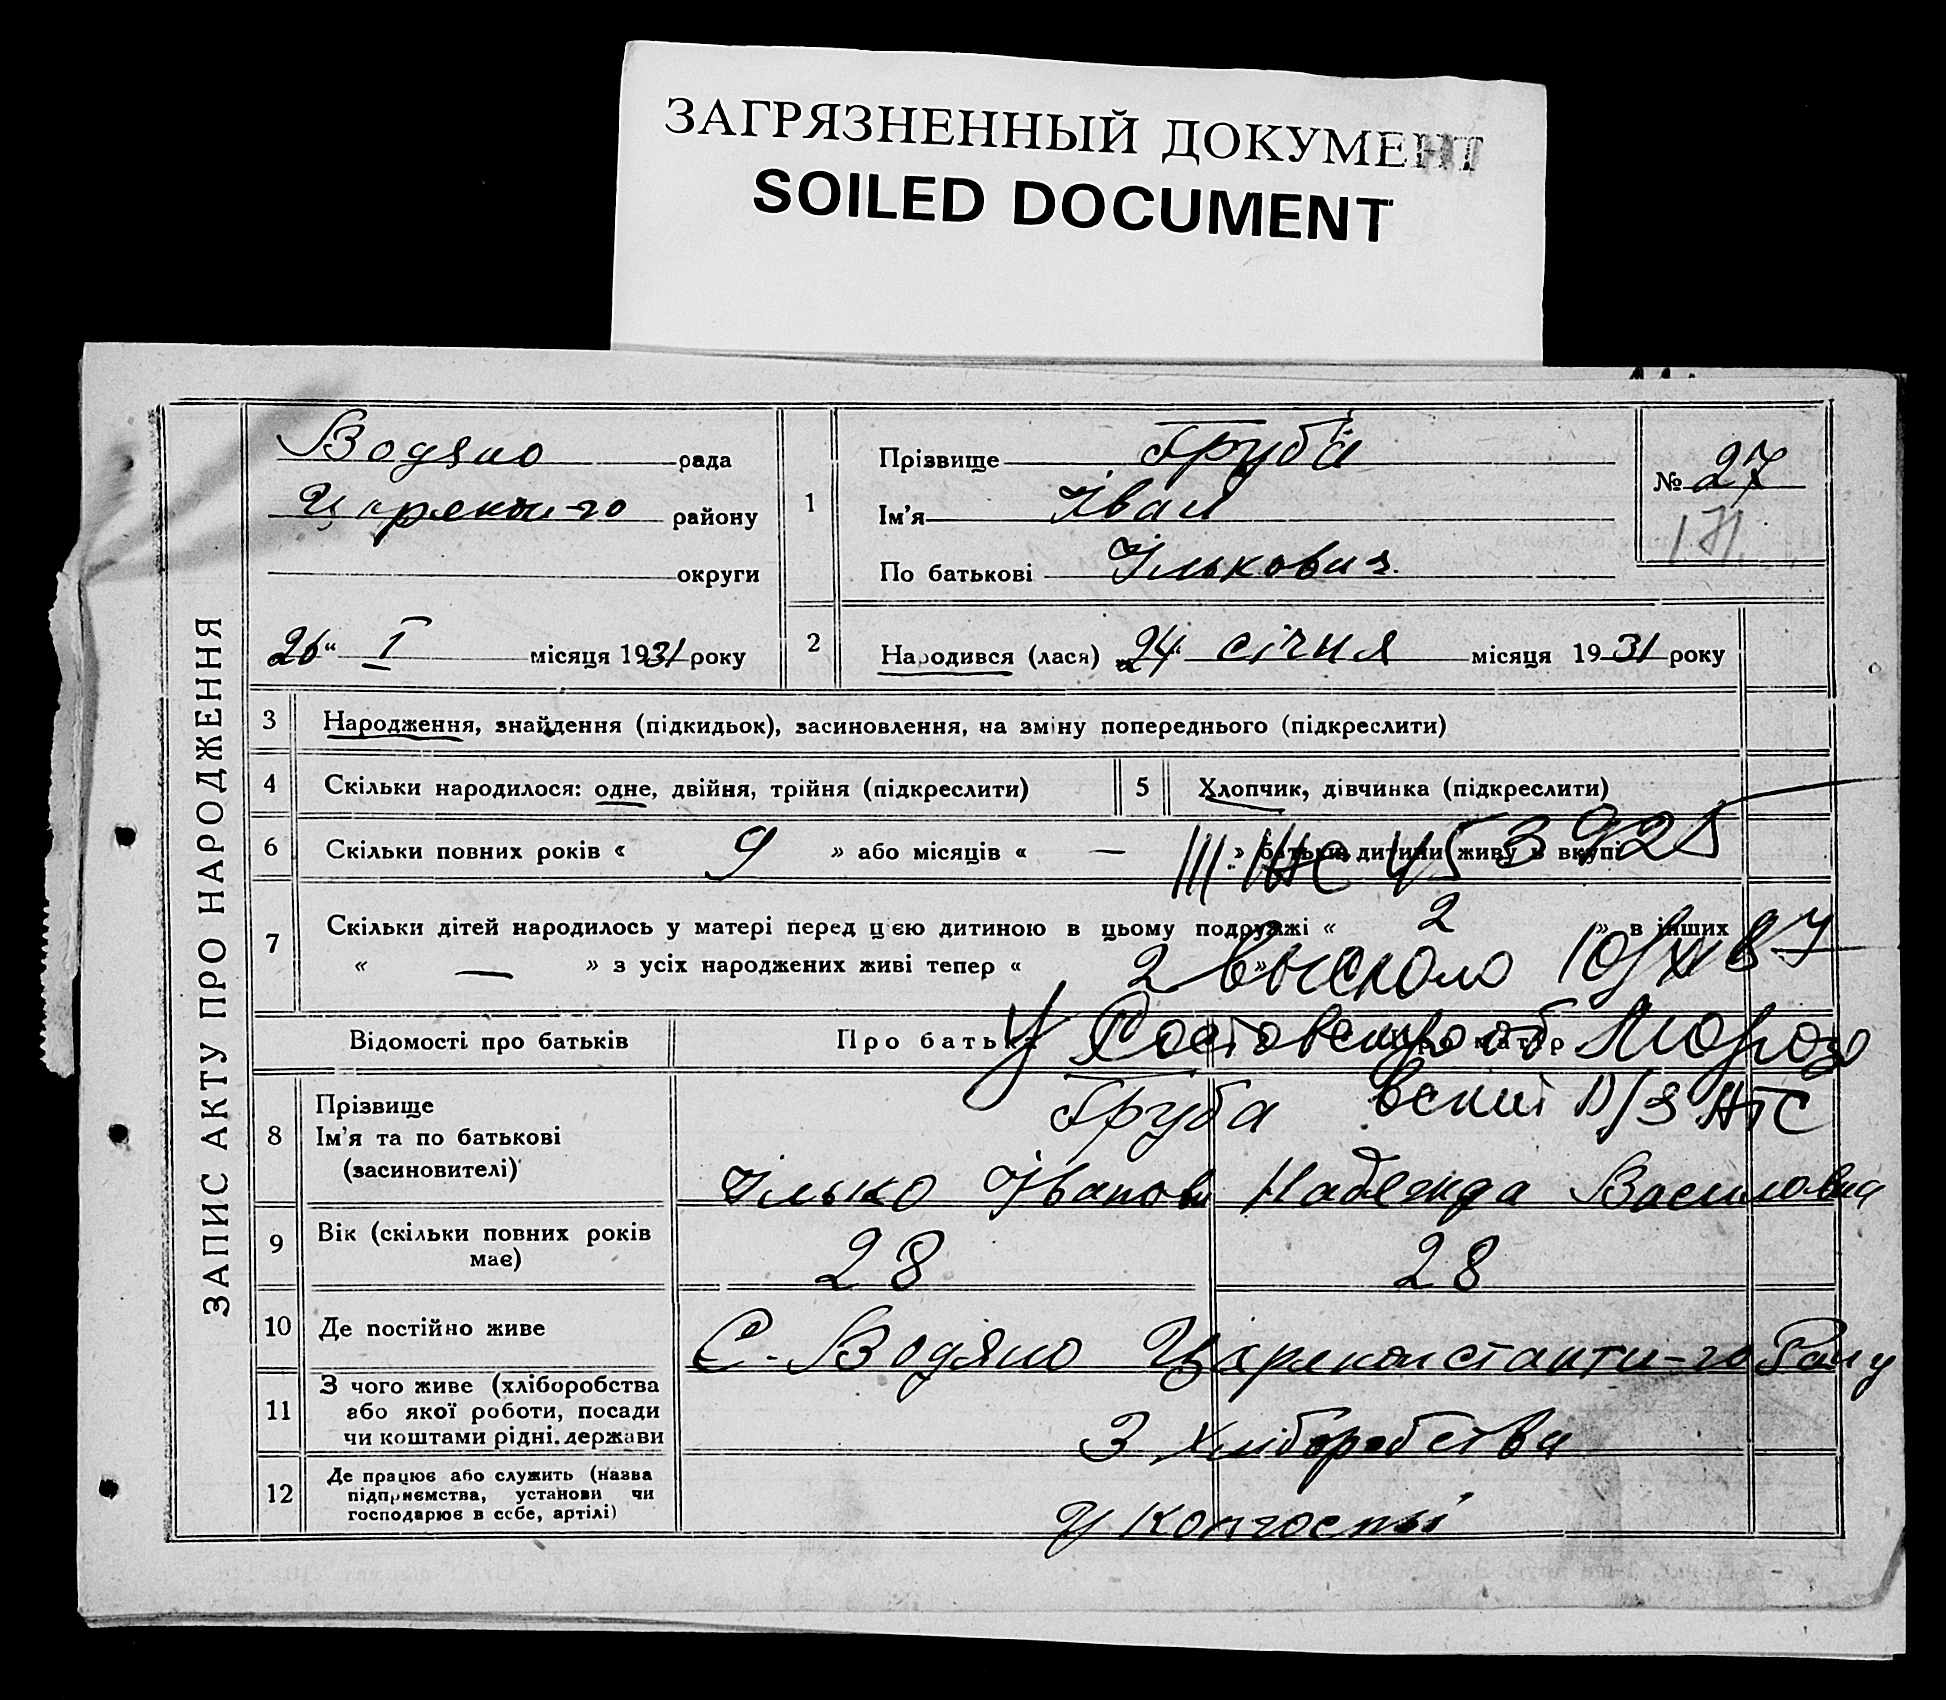 ЗАГРЯЗНЕННЫЙ ДОКУМЕНТ
SOILED DOCUMENT
ЗАПИС АКТУ ПРО НАРОДЖЕННЯ
Водяно рада
району
округи
26 " I місяця 1931 року
1
Прізвище Груба
Ім'я Іван
По батькові Ількович
№ 27
171
2
Народився (лася) "24" січня місяця 1931 року
3 Народження, знайдення (підкидьок), засиновлення, на зміну попереднього (підкреслити)
4 Скільки народилося: одне, двійня, трійня (підкреслити)
5 Хлопчик, дівчинка (підкреслити)
6 Скільки повних років « 9 » або місяців « — » батьки дитини живу в вкупі
III 453925
7 Скільки дітей народилось у матері перед цією дитиною в цьому подружжі « 2 » в інших
« — » з усіх народжених живі тепер « 2 »
10/XI 87
Відомості про батьків Про батька Про матір
8 Прізвище
Ім'я та по батькові
(засиновителі)
Груба
Ілько Іванов Надежда Василовна
9 Вік (скільки повних років
має)
28 28
10 Де постійно живе
С. Водяно Царяконстанти-го Рану
11 З чого живе (хліборобства
або якої роботи, посади
чи коштами рідні. держави
З хліборобства
12 Де працює або служить (назва
підприємства, установи чи
господарює в себе, артілі)
У колгоспі